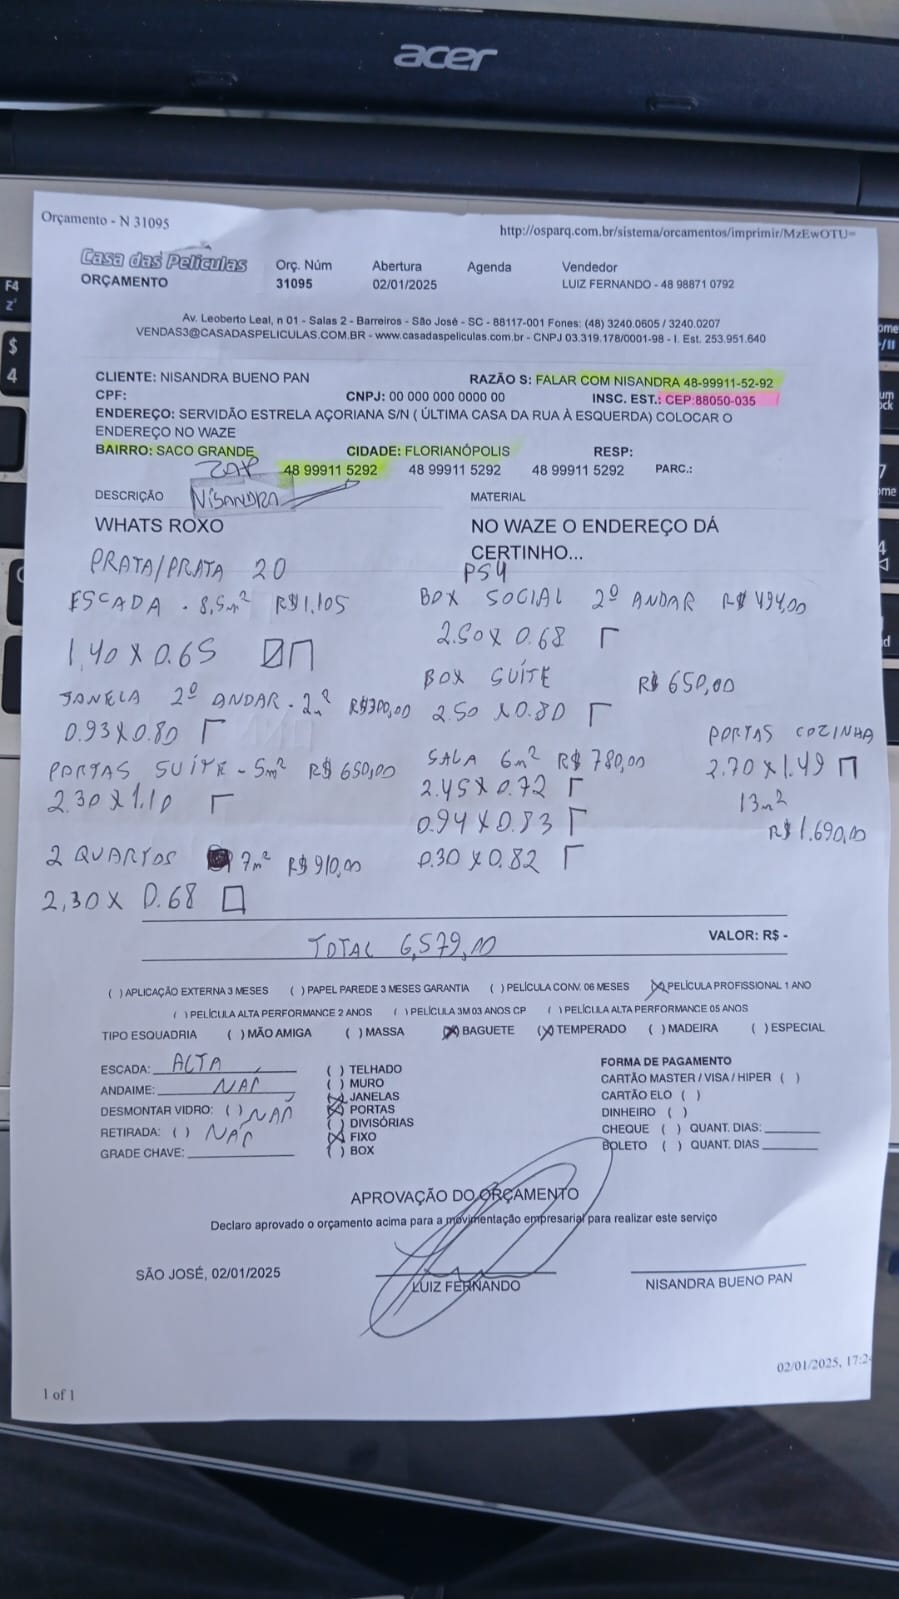 acer
Orçamento - N 31095
http://osparq.com.br/sistema/orcamentos/imprimir/MzEwOTU=
Casa das Películas
ORÇAMENTO
Orç. Núm
31095
Abertura
02/01/2025
Agenda
Vendedor
LUIZ FERNANDO - 48 98871 0792
Av. Leoberto Leal, n 01 - Salas 2 - Barreiros - São José - SC - 88117-001 Fones: (48) 3240.0605 / 3240.0207
VENDAS3@CASADASPELICULAS.COM.BR - www.casadaspeliculas.com.br - CNPJ 03.319.178/0001-98 - I. Est. 253.951.640
CLIENTE: NISANDRA BUENO PAN RAZÃO S: FALAR COM NISANDRA 48-99911-52-92
CPF: CNPJ: 00 000 000 0000 00 INSC. EST.: CEP:88050-035
ENDEREÇO: SERVIDÃO ESTRELA AÇORIANA S/N ( ÚLTIMA CASA DA RUA À ESQUERDA) COLOCAR O
ENDEREÇO NO WAZE
BAIRRO: SACO GRANDE CIDADE: FLORIANÓPOLIS RESP:
ZAP 48 99911 5292 48 99911 5292 48 99911 5292 PARC.:
DESCRIÇÃO NISANDRA MATERIAL
WHATS ROXO
NO WAZE O ENDEREÇO DÁ
CERTINHO...
PRATA/PRATA 20
PS4
ESCADA - 8,5m² R$1.105
1,40 X 0.65
JANELA 2º ANDAR - 2m² R$300,00
0.93X0.80
PORTAS SUÍTE - 5m² R$ 650,00
2.30 X 1.10
2 QUARTOS 7m² R$ 910,00
2,30 X 0.68
BOX SOCIAL 2º ANDAR R$ 494,00
2.50 X 0.68
BOX SUÍTE R$ 650,00
2.50 X 0.80
SALA 6m² R$ 780,00
2.45 X 0.72
0.94 X 0.83
0.30 X 0.82
PORTAS COZINHA
2.70 X 1.49
13m²
R$ 1.690,00
TOTAL 6,579,00
VALOR: R$ -
( ) APLICAÇÃO EXTERNA 3 MESES ( ) PAPEL PAREDE 3 MESES GARANTIA ( ) PELÍCULA CONV. 06 MESES (X) PELÍCULA PROFISSIONAL 1 ANO
( ) PELÍCULA ALTA PERFORMANCE 2 ANOS ( ) PELÍCULA 3M 03 ANOS CP ( ) PELÍCULA ALTA PERFORMANCE 05 ANOS
TIPO ESQUADRIA ( ) MÃO AMIGA ( ) MASSA (X) BAGUETE (X) TEMPERADO ( ) MADEIRA ( ) ESPECIAL
ESCADA: ALTA
ANDAIME: NÃO
DESMONTAR VIDRO: ( ) NÃO
RETIRADA: ( ) NÃO
GRADE CHAVE:
( ) TELHADO
( ) MURO
(X) JANELAS
(X) PORTAS
( ) DIVISÓRIAS
(X) FIXO
( ) BOX
FORMA DE PAGAMENTO
CARTÃO MASTER / VISA / HIPER ( )
CARTÃO ELO ( )
DINHEIRO ( )
CHEQUE ( ) QUANT. DIAS:
BOLETO ( ) QUANT. DIAS
APROVAÇÃO DO ORÇAMENTO
Declaro aprovado o orçamento acima para a movimentação empresarial para realizar este serviço
SÃO JOSÉ, 02/01/2025
LUIZ FERNANDO
NISANDRA BUENO PAN
02/01/2025, 17:2
1 of 1